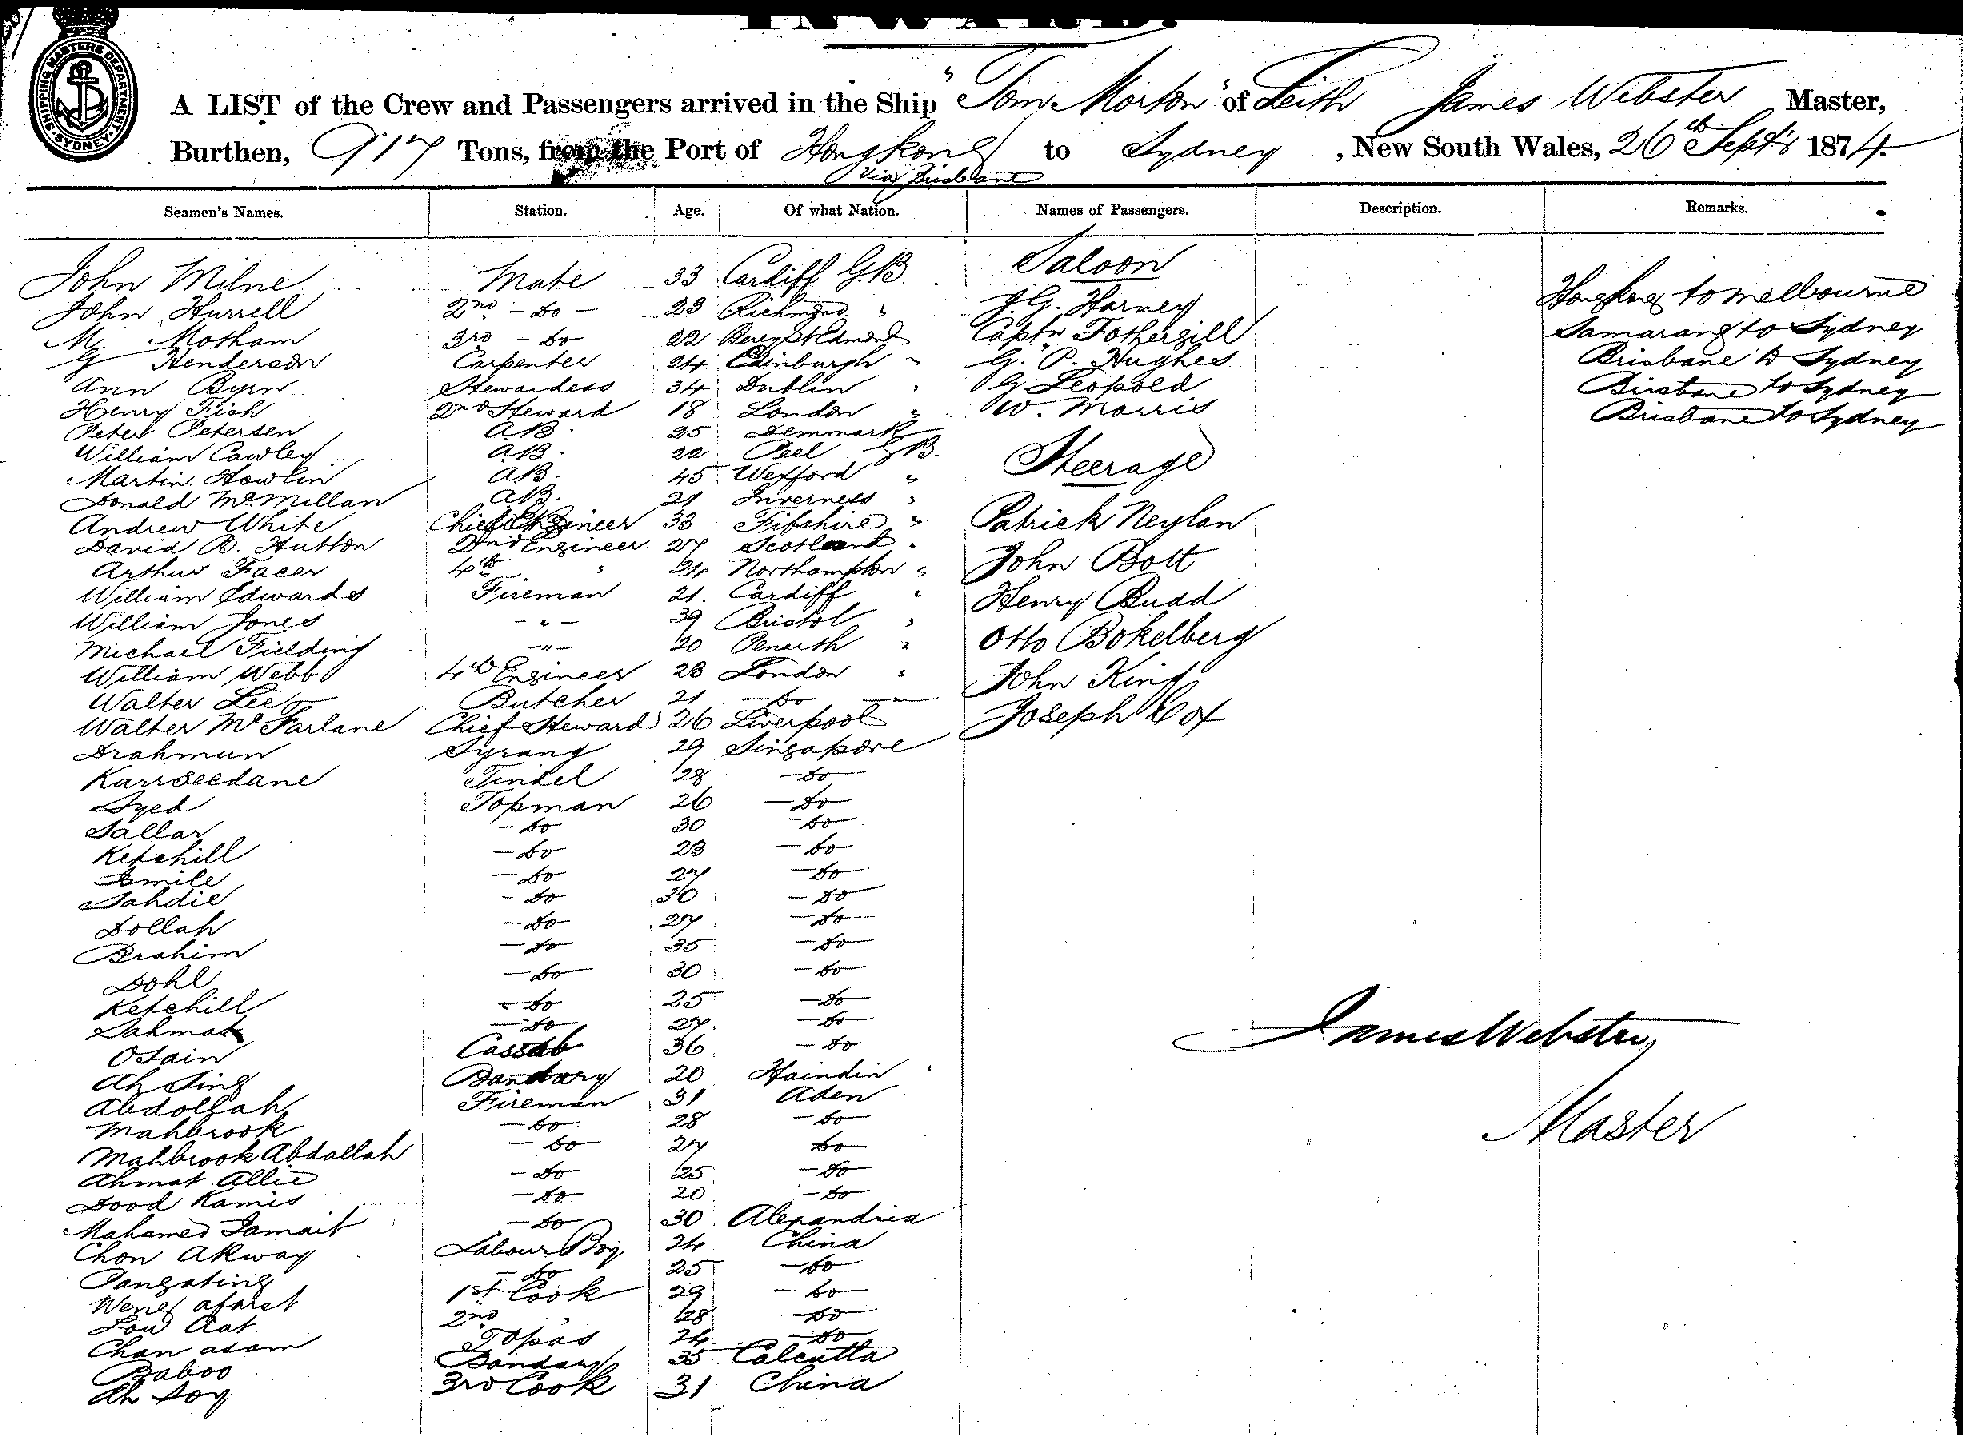 INWARD.
SHIPPING MASTERS DEPARTMENT SYDNEY
A LIST of the Crew and Passengers arrived in the Ship "Tom Morton" of Leith James Webster Master,
Burthen, 917 Tons, from the Port of Hongkong to Sydney, New South Wales, 26th Septr 1874.
via Brisbane
Seamen's Names. Station. Age. Of what Nation. Names of Passengers. Description. Remarks.
Saloon
John Milne Mate 33 Cardiff GB
John Hurrell 2nd - do - 23 Richmond " J. G. Harney Hongkong to Melbourne
M Motham 3rd - do 22 Bury St Edmond Captn Fothergill Samarang to Sydney
G Henderson Carpenter 24 Edinburgh " G. P. Hughes Brisbane to Sydney
Ann Byrn Stewardess 34 Dublin " G Leopold Brisbane to Sydney
Henry Fish 2nd Steward 18 London " W. Morris Brisbane to Sydney
Peter Petersen AB 25 Denmark
William Cawley AB. 22 Peel GB. Steerage
Martin Howlin AB. 45 Wexford "
Donald McMillan AB. 21 Inverness "
Andrew White Chief Engineer 33 Fifeshire " Patrick Neylan
David R. Hutton 2nd Engineer 27 Scotland "
Arthur Facer 4th " 24 Northampton " John Bott
William Edwards Fireman 21. Cardiff " Henry Budd
William Jones - " - 39 Bristol "
Michael Fielding - " - 20 Penarth " Otto Bokelberg
William Webb 4th Engineer 28 London "
Walter Lee Butcher 21 - do - John King
Walter McFarlane Chief Steward 26 Liverpool Joseph Cox
Drahmun Syrang 29 Singapore
Karrseedane Tindel 28 - do
Syed Topman 26 - do
Sallar - do 30 - do
Ketchill - do 23 - do
Smile - do 27 - do
Sahdie - do 30 - do
Dollah - do 27 - do
Brahim - do 35 - do
Dohl - do 30 - do
Ketchill - do 25 - do
Sahmat - do 27. - do
Osain Cassab 36 - do
Ah Sing Bandary 20 Haindin
Abdollah Fireman 31 Aden
Mahbrook - do 28 - do
Mahbrook Abdallah - do 27 do
Ahmat Allie - do 25 - do
Dood Kamis - do 20 - do
Mahamed Ismail - do 30 Alexandria
Chon Akway Labour Boy 24 China
Pangating - do 25 - do
Weng afaist 1st Cook 29 - do
Low Aat 2nd 28 - do
Chan asam Topas 24 - do
Baboo Bandary 35 Calcutta
Ah Soy 3rd Cook 31 China
James Webster
Master